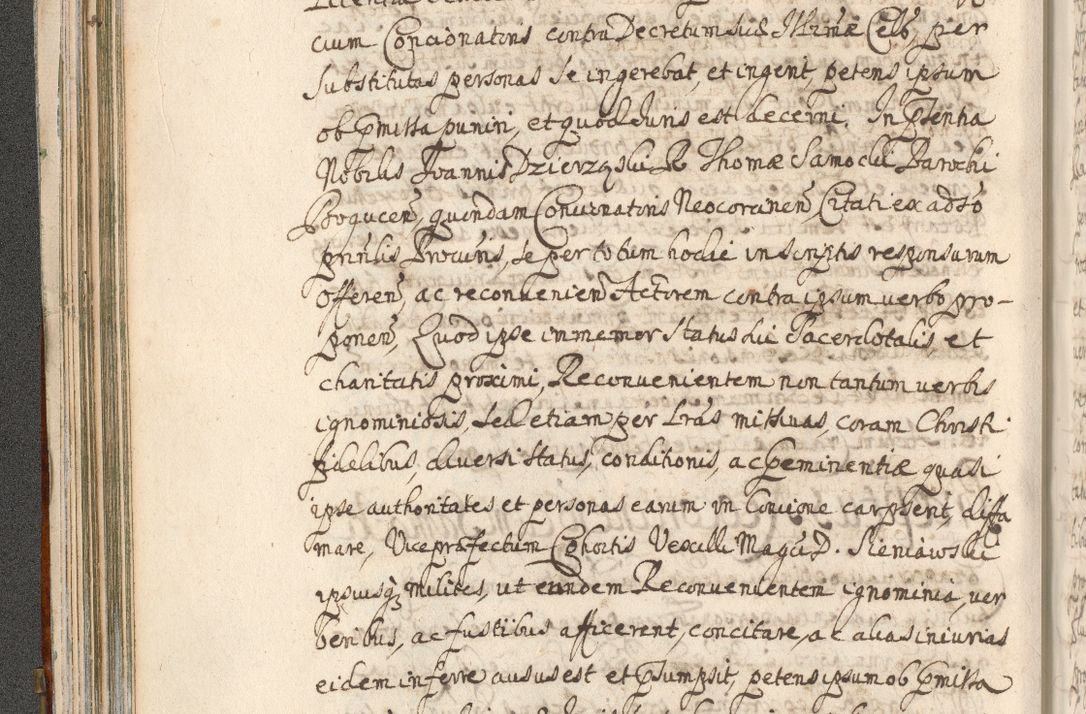 cium Concionatoris contra Decretum suæ Illrmæ Cels, per
substitutas personas se ingerebat, et ingerit, petens ipsum
ob præmissa puniri, et quod Juris est decerni. In præsentia
Nobilis Joannis Dzierząski R Thomæ Samocki Parochi
Proquceń, quondam Conuinatoris Neocorcinen Citati ex adso
prinlis Procuris, se per totum hodie in scriptis responsurum
offeren, ac reconuenien Actorem contra ipsum verbo pro-
ponen, Quod ipse immemor status sui Sacerdotalis et
charitatis proximi, Reconuenientem non tantum verbis
ignominiosis, sed etiam per Lras missiuas, coram Christi
fidelibus, diuersi status, conditionis, ac præeminentiæ quasi
ipse authoritates et personas earum in Concione carpserit, diffa
mare, Vicepræfectum Cohortis Vexilli Magci D. Sieniawski
ipsiusq milites, ut eundem Reconuenientem ignominia, ver
beribus, ac fustibus afficerent, concitare, ac alias iniurias
eidem inferre ausus est et præsumpsit, petens ipsum ob præmissa